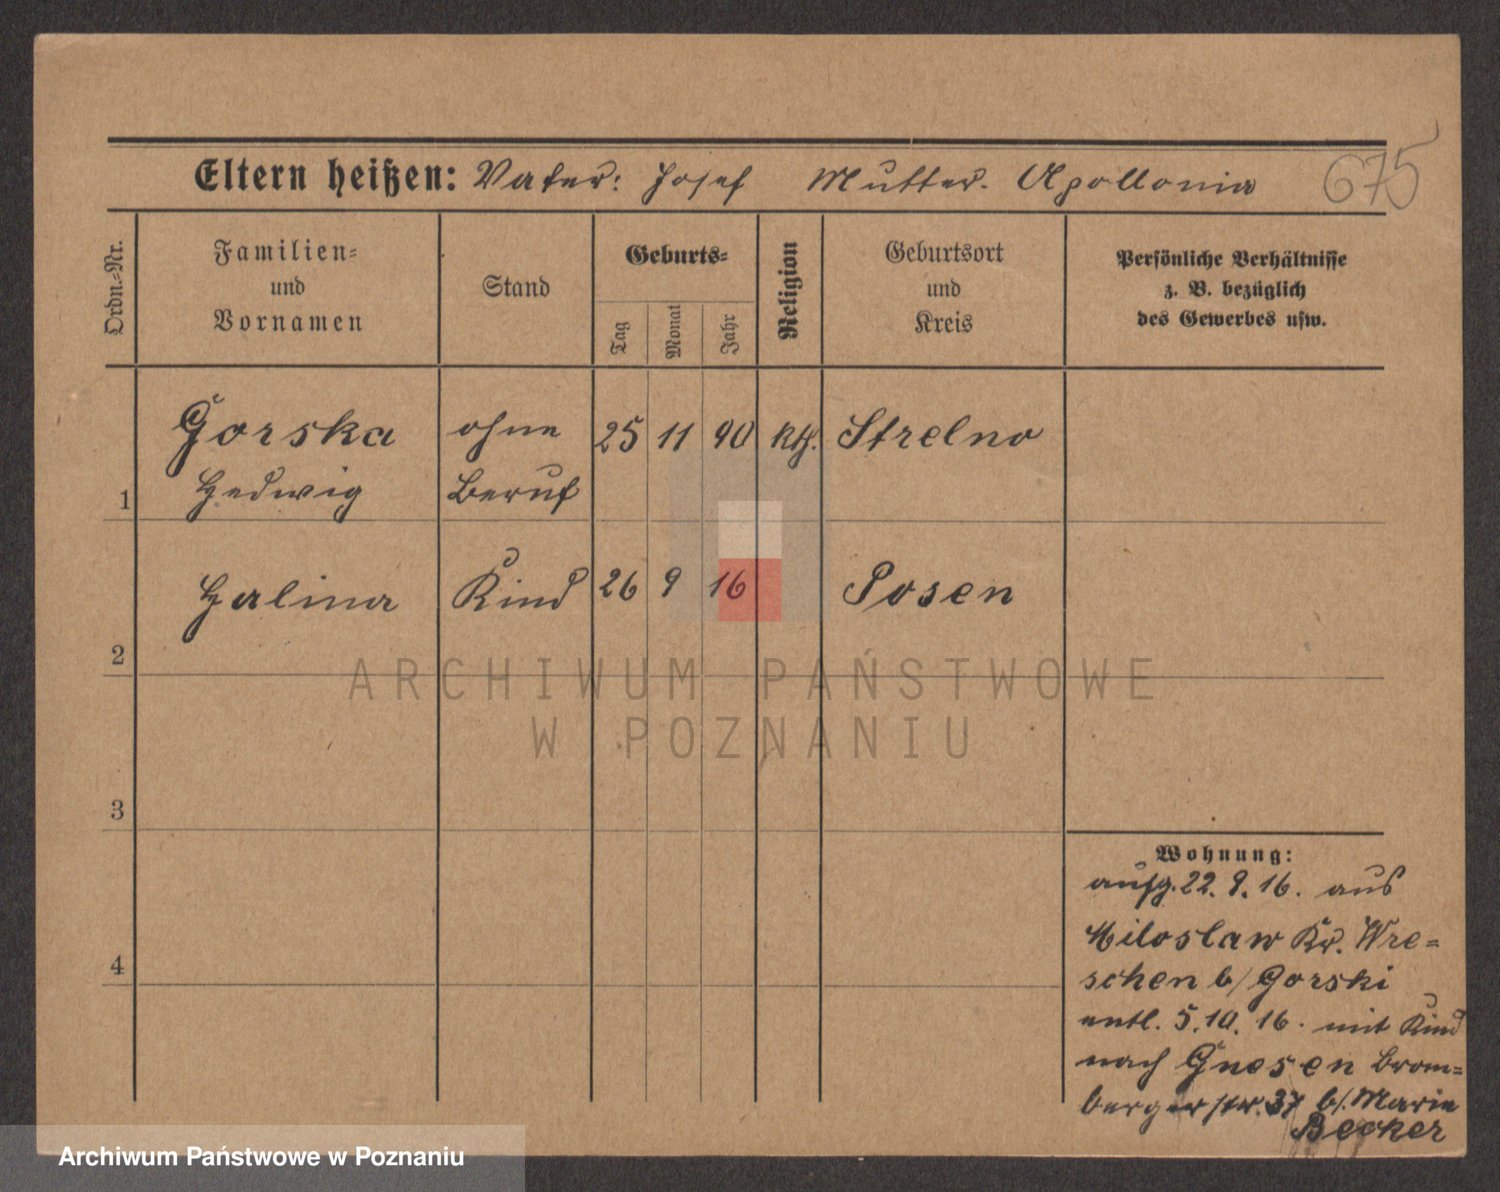 Eltern heißen: Vater: Josef Mutter. Apollonia 675
Ordn.-Nr.
Familien-
und
Vornamen
Stand
Geburts-
Tag
Monat
Jahr
Religion
Geburtsort
und
Kreis
Persönliche Verhältnisse
z. B. bezüglich
des Gewerbes usw.
1 Gorska ohne 25 11 90 kth. Strelno
Hedwig Beruf
2 Halina Kind 26 9 16 Posen
3
4
Wohnung:
aufg. 22. 9. 16. aus
Miloslaw Kr. Wre=
schen b/ Gorski
entl. 5.10. 16. mit Kind
nach Gnesen Brom=
bergerstr. 37 b/. Marie
Becker
ARCHIWUM PAŃSTWOWE
W POZNANIU
Archiwum Państwowe w Poznaniu